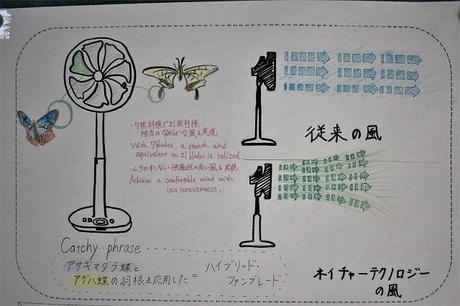 ・7枚羽根で21枚羽根
相当のなめらかな風を実現
With 7blades, a smooth wind
equivalent to 21 blades is realized.
・ムラの少ない快適性の高い風を実現
Achieve a comfortable wind with
less unevenness.
従来の風
Catchy phrase
アサギマダラ蝶と
アゲハ蝶の羽根を応用した=
ハイブリッド
ファンブレード
ネイチャーテクノロジー
の風